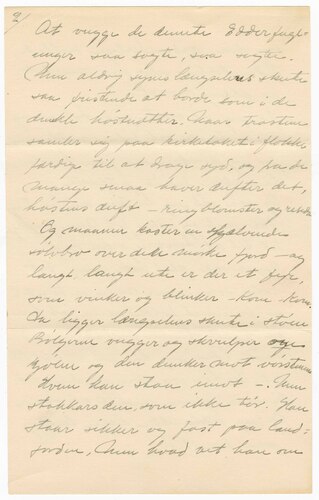 2/
At vugge de dunete Edderfugl-
unger saa sagte, saa sagte.
Men aldrig synes længselens skute
saa fristende at borde som i de
dunkle höstnätter. Naar trosten
samler sig paa kirketaket i flokke
færdige til at drage syd, og paa de
mange smaa haver dufter det,
höstens duft - ringblomster og
Og maanen kaster en skjælvende
sölvbro over den mörke fjord - og
langt langt ute er der et fyr,
som vinker og blinker - kom - kom.
Da ligger længselens skute i stöen
Bölgerne vugger og skvulper
kjölen og den dunker mot
Hvem kan staa imot -. Men
stakkars den, som ikke tör. Han
staar sikker og fast paa land-
jorden, Men hvad vet han om